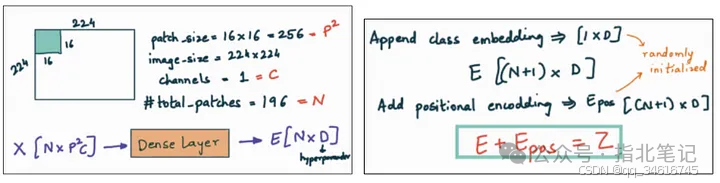 224
16
224
16
patch_size = 16×16 = 256 = P²
image_size = 224×224
channels = 1 = C
#total_patches = 196 = N
X [N×P²C]
Dense Layer
E[N×D]
hyperparameter
Append class embedding ⇒ [1×D]
randomly
initialized
E [(N+1) × D]
Add positional encodding ⇒ Epos [(N+1) × D]
E + Epos = Z
公众号 · 指北笔记
CSDN @qq_34616745